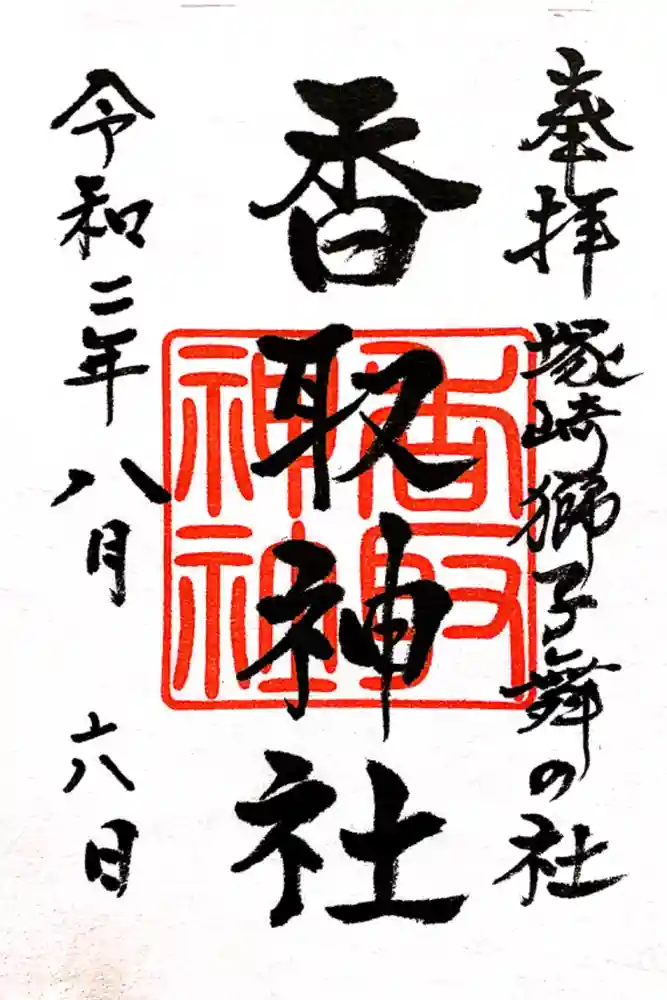 奉拝
塚崎獅子舞の社
香取神社
香取
神社
令和二年八月六日